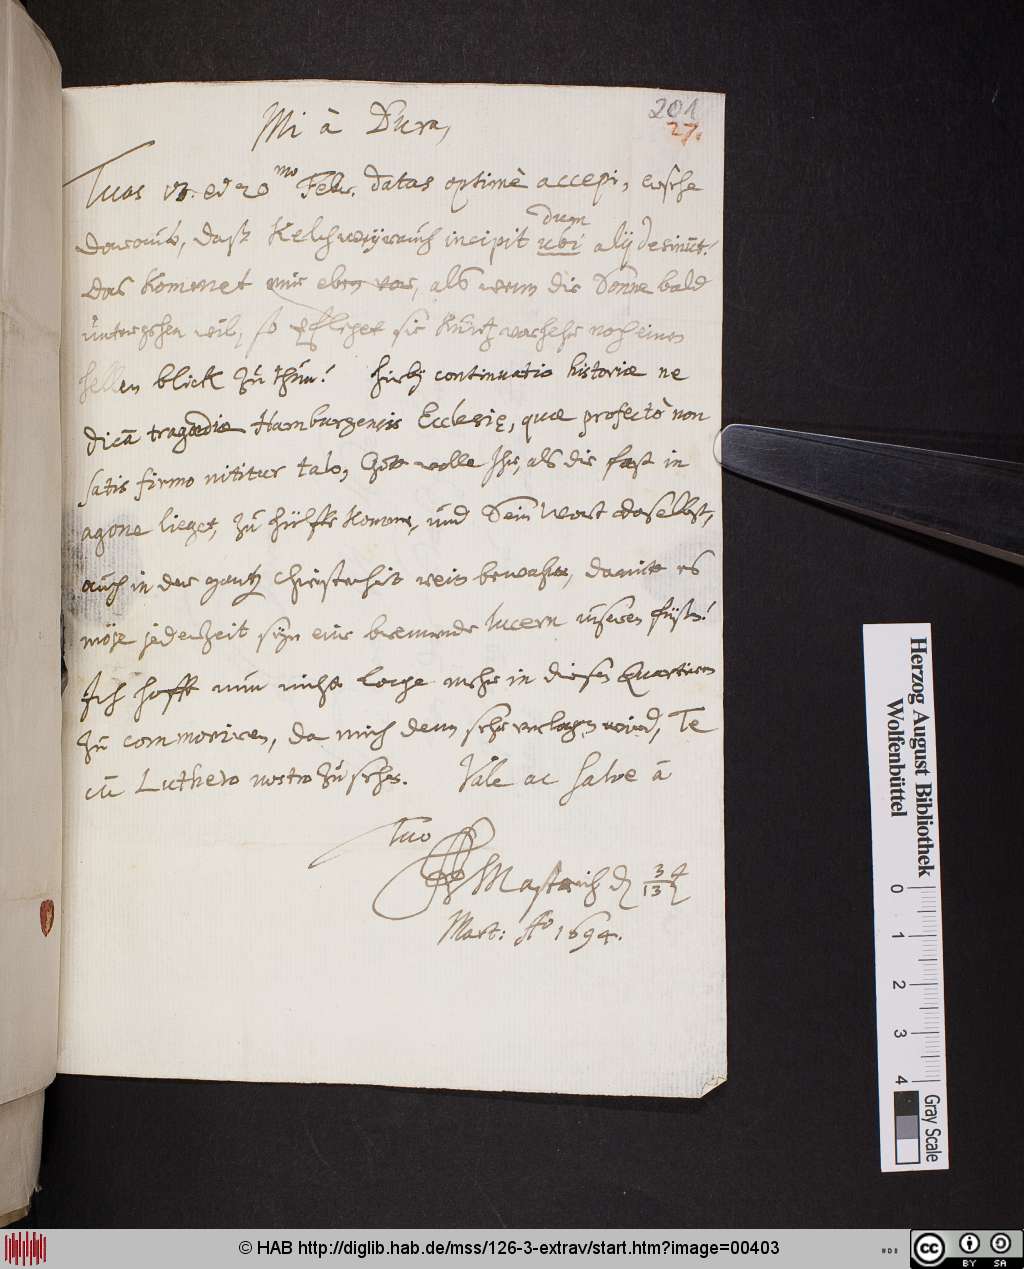 201
27.
Mi à Dura,
Tuas 17. et 20mo Febr. datas optimè accepi, ersehe
darauß, daß Kelchweyrauch incipit dum
ubi alij desinūt.
das kommet mir eben vor, als wenn die Sonne bald
untergehen wil, so pfleget sie kurtz vorhehr noch einen
hellen blick zu thun! hierbj continuatio historiæ ne
dicā tragœdiæ Hamburgensis Ecclesię, quæ profectò non
satis firmo nititur talo, Gott wolle Ihr, als die fast in
agone lieget, zu hülffe kommen, und Sein Wort daselbst,
auch in der gantz Christenheit rein bewahren, damit es
möge jederzeit seyn eine brennende lucern unseren füßen!
Ich hoffe nun nicht lange mehr in diesen Quartieren
zu commoriren, da mich denn sehr verlangen wird, Te
cū Luthero nostro zu sehen. Vale ac salve à
Tuo
Mastrich d 3/13
Mart: Ao 1694.
Herzog August Bibliothek
Wolfenbüttel
0 1 2 3 4
Gray Scale
© HAB http://diglib.hab.de/mss/126-3-extrav/start.htm?image=00403
cc BY SA